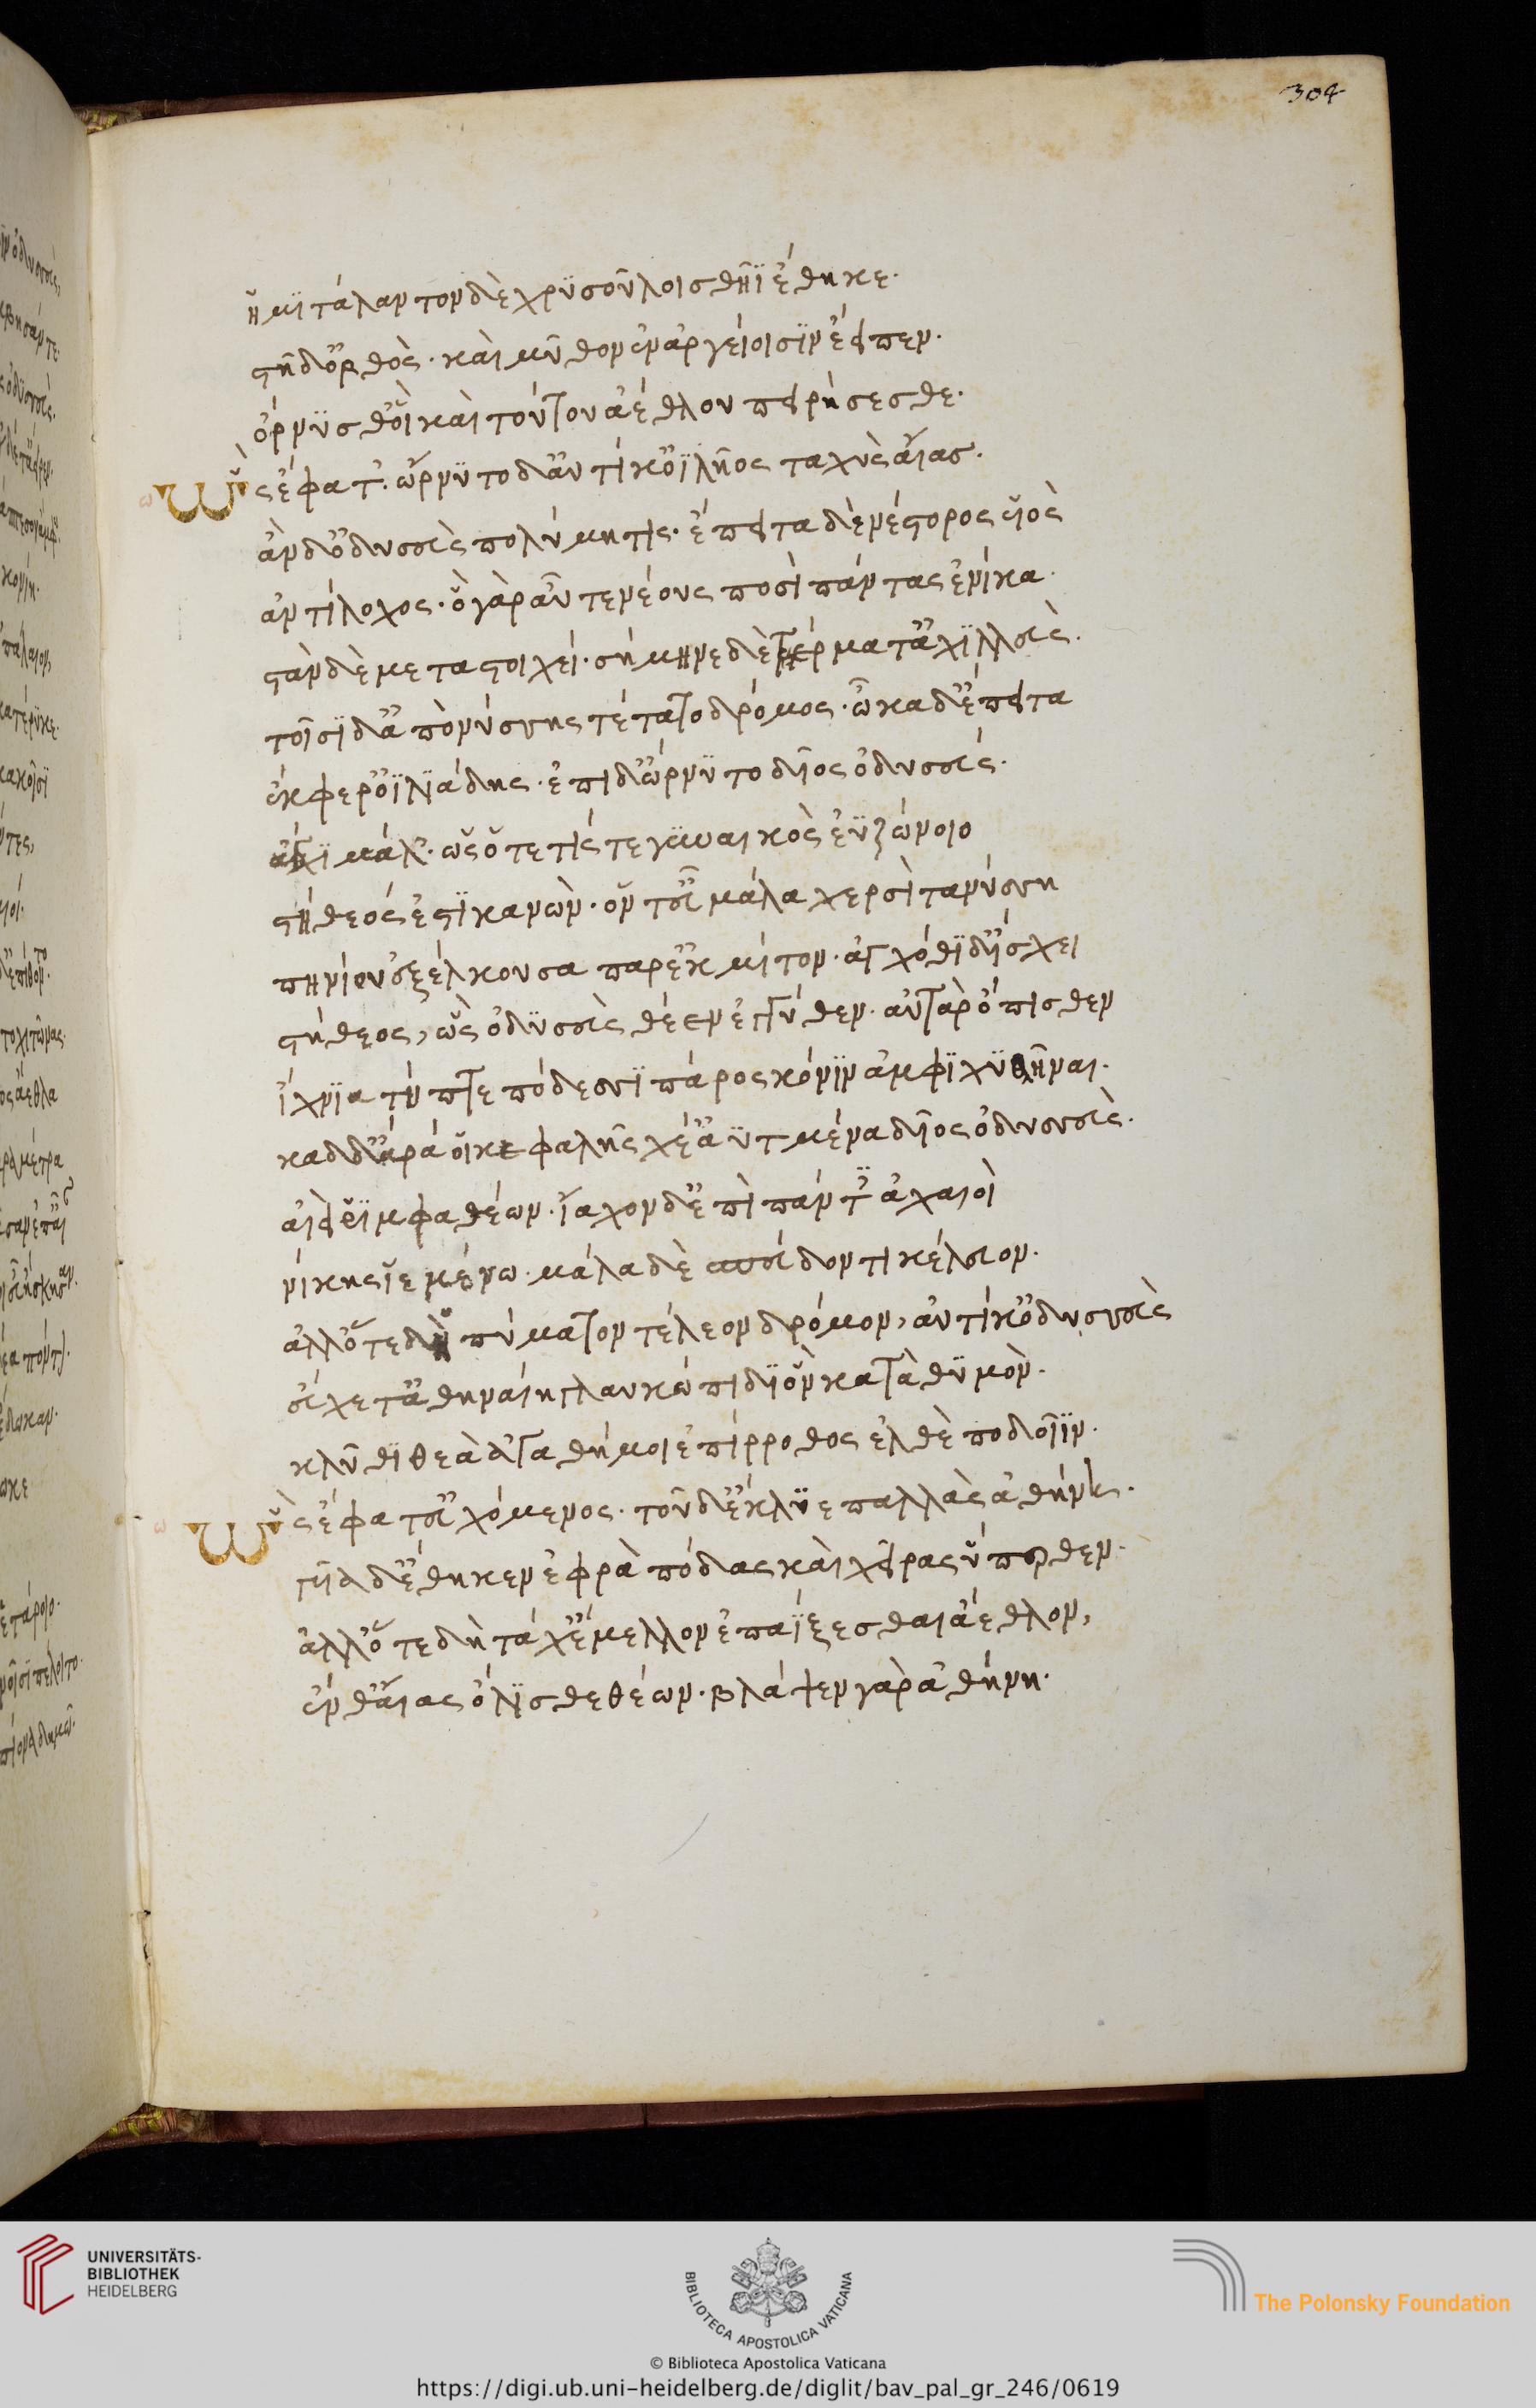 304
ἡμϊτάλαντον δὲ χρϋσοῦ λοισθήϊ ἔθηκε·
στῆ δ' ὀρθὸς· καὶ μῦθον ἐν ἀργείοισϊν ἔειπεν·
ὄρνϋσθ' οἳ καὶ τούτου ἀέθλου πειρήσεσθε·
ὣς ἔφατ'· ὤρνϋτο δ' αὐτίκ' ὀϊλῆος ταχὺς αἴας·
ἂν δ' ὀδυσσεὺς πολύμητις· ἔπειτα δὲ νέστορος υἱὸς
ἀντίλοχος· ὃ γὰρ αὖτε νέους ποσὶ πάντας ἐνίκα·
στὰν δὲ μεταστοιχεί· σήμηνε δὲ τέρματ' ἀχϊλλεὺς·
τοῖσϊ δ' ἀπὸ νύσσης τέτατο δρόμος· ὦκα δ' ἔπειτα
ἔκφερ' ὀϊλϊάδης· ἐπὶ δ' ὤρνϋτο δῖος ὀδυσσεύς·
ἄγχϊ μάλ'· ὡς ὅτε τίς τε γϋναικὸς ἐϋζώνοιο
στήθεός ἐστϊ κανὼν· ὅν τ' εὖ μάλα χερσὶ τανύσση
πηνίον ἐξέλκουσα παρὲκ μίτον· ἀγχόθϊ δ' ἴσχει
στήθεος, ὣς ὀδϋσσεὺς θέεν ἐγγύθεν· αὐτὰρ ὄπισθεν
ἴχνϊα τύπτε πόδεσσϊ πάρος κόνϊν ἀμφϊχϋθῆναι·
καδ δ' ἄρά οἱ κεφαλῆς χέ' ἀϋτμένα δῖος ὀδυσσεὺς·
αἰεὶ ῥϊμφα θέων· ἴαχον δ' ἐπὶ πάντϊ ἀχαιοὶ
νίκης ἱεμένω· μάλα δὲ σπεύδοντι κέλευον·
ἀλλ' ὅτε δὴ πύματον τέλεον δρόμον, αὐτίκ' ὀδυσσεὺς
εὔχετ' ἀθηναίη γλαυκώπιδϊ ὃν κατὰ θϋμὸν·
κλῦθϊ θεὰ ἀγαθή μοι ἐπίρροθος ἐλθὲ ποδοῖϊν·
ὣς ἔφατ' εὐχόμενος· τοῦ δ' ἔκλϋε παλλὰς ἀθήνη·
γυῖα δ' ἔθηκεν ἐφρὰ πόδας καὶ χεῖρας ὕπερθεν·
ἀλλ' ὅτε δὴ τάχ' ἔμελλον ἐπαΐξεσθαι ἄεθλον,
ἔνθ' αἴας ὄλϊσθε θέων· βλάψεν γὰρ ἀθήνη·
UNIVERSITÄTS-
BIBLIOTHEK
HEIDELBERG
BIBLIOTECA APOSTOLICA VATICANA
The Polonsky Foundation
© Biblioteca Apostolica Vaticana
https://digi.ub.uni-heidelberg.de/diglit/bav_pal_gr_246/0619